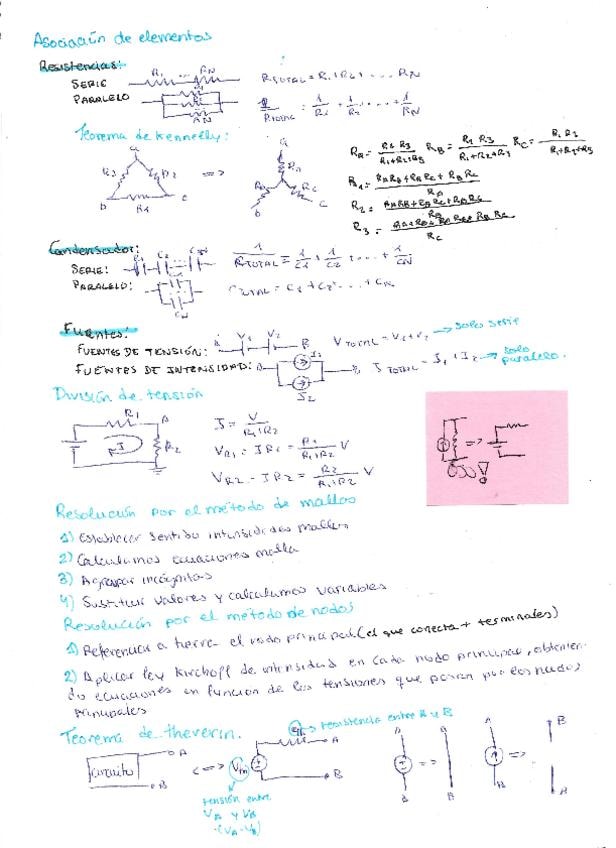 Asociación de elementos
Resistencias:
SERIE R1 ... RN RTOTAL = R1+R2+... RN
PARALELO R1 R2 RN 1/RTOTAL = 1/R1 + 1/R2 +...+ 1/RN
Teorema de Kennelly:
a a
R3 R2 <=> RA RB RC
b R1 c b c
RA = R2 R3/R1+R2+R3 RB = R1 R3/R1+R2+R3 RC = R1 R2/R1+R2+R3
R1 = RARB+RARC+RBRC/RA
R2 = RARB+RARC+RBRC/RB
R3 = RARB+RARC+RBRC/RC
Condensador:
SERIE: C1 C2 CN 1/RTOTAL = 1/C1 + 1/C2 +...+ 1/CN
PARALELO: CN CTOTAL = C1+C2+...+CN
Fuentes:
FUENTES DE TENSIÓN: A V1 V2 B VTOTAL = V1+V2 → solo serie
FUENTES DE INTENSIDAD: A I1 I2 B ITOTAL = I1+I2 → solo paralelo.
División de tensión
R1 A I R2
I = V/R1+R2
VR1 = IR1 = R1/R1+R2 V
VR2 = IR2 = R2/R1+R2 V
=> OJO!
Resolución por el método de mallas
1) Establecer sentido intensidades mallas
2) Calculamos ecuaciones malla
3) Agrupar incógnitas
4) Sustituir valores y calculamos variables
Resolución por el método de nodos
1) Referencia a tierra el nodo principal (el que conecta + terminales)
2) Aplicar ley Kirchoff de intensidad en cada nodo principal, obtenien-
do ecuaciones en función de las tensiones que pasan por los nodos
principales
Teorema de thevenin.
→ resistencia entre A y B
circuito A B <=> Vth A B
A B => A B A B => B A
tensión entre
VA y VB
(VA-VB)